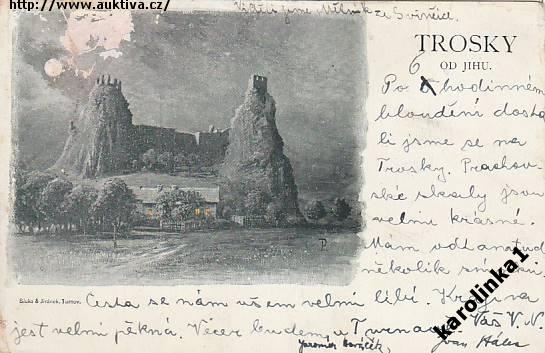 http://www.auktiva.cz/
Viděli jsme Mělník ze Svinčid.
TROSKY
OD JIHU.
Po 6 hodinném
bloudění dosta
li jsme se na
Trosky. Prachov-
ské skály jsou
velmi krásné.
Mám odtamtud
několik
Síuka & Jiránek, Turnov.
Cesta se nám všem velmi líbí. Krajina
jest velmi pěkná. Večer budem v Turnově. Váš V. N.
Jaromír
Jan Hála
karolinka1